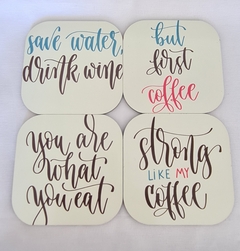 save water,
drink wine
but
first
coffee
you are
what
you eat
strong
LIKE MY
coffee